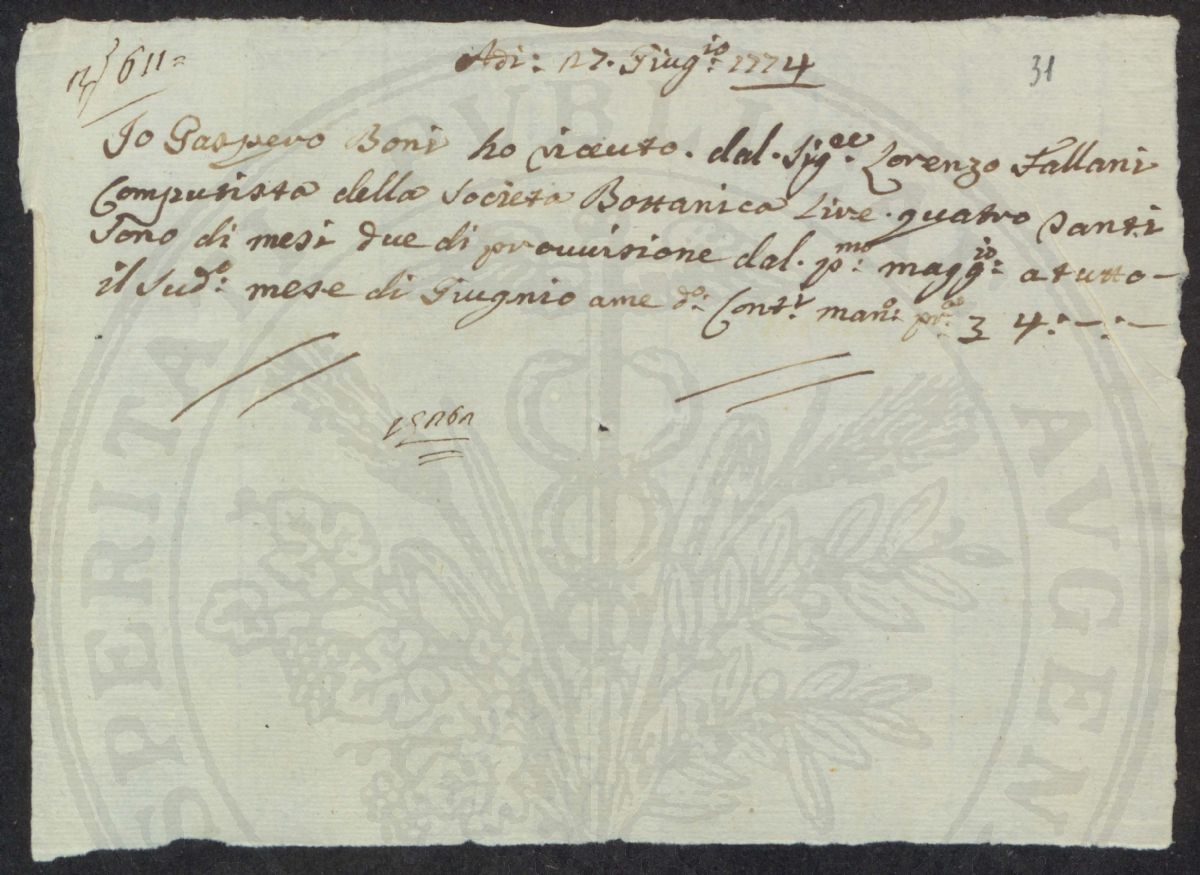 611
Adi: 27. Giug.io 1774
31
Io Gaspero Boni ho riceuto. dal. Sig.re Lorenzo Fallani
Computista della Societa Bottanica Lire. quatro Santi
Sono di mesi due di provvisione dal. p.mo magg.io a tutto -
il Sud.o mese di Giugnio a me d.o Cont.i man.o pr.a 4:-:-
PROSPERITATI PUBLICAE AUGENDAE